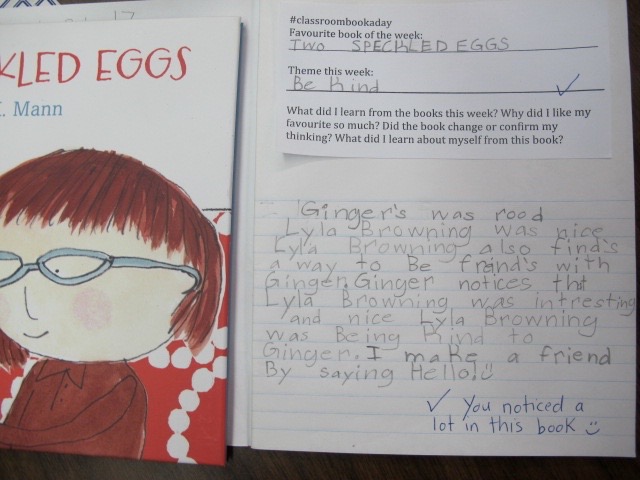 KLED EGGS
. Mann
#classroombookaday
Favourite book of the week:
TWO SPECKLED EGGS
Theme this week:
Be Kind
What did I learn from the books this week? Why did I like my
favourite so much? Did the book change or confirm my
thinking? What did I learn about myself from this book?
Ginger's was rood
Lyla Browning was nice
Lyla Browning also find's
a way to Be frèind's with
Ginger. Ginger notices tht
Lyla Browning was intresting
and nice Lyla Browning
was Being Kind to
Ginger. I make a friend
By saying Hello!
✓ You noticed a
lot in this book